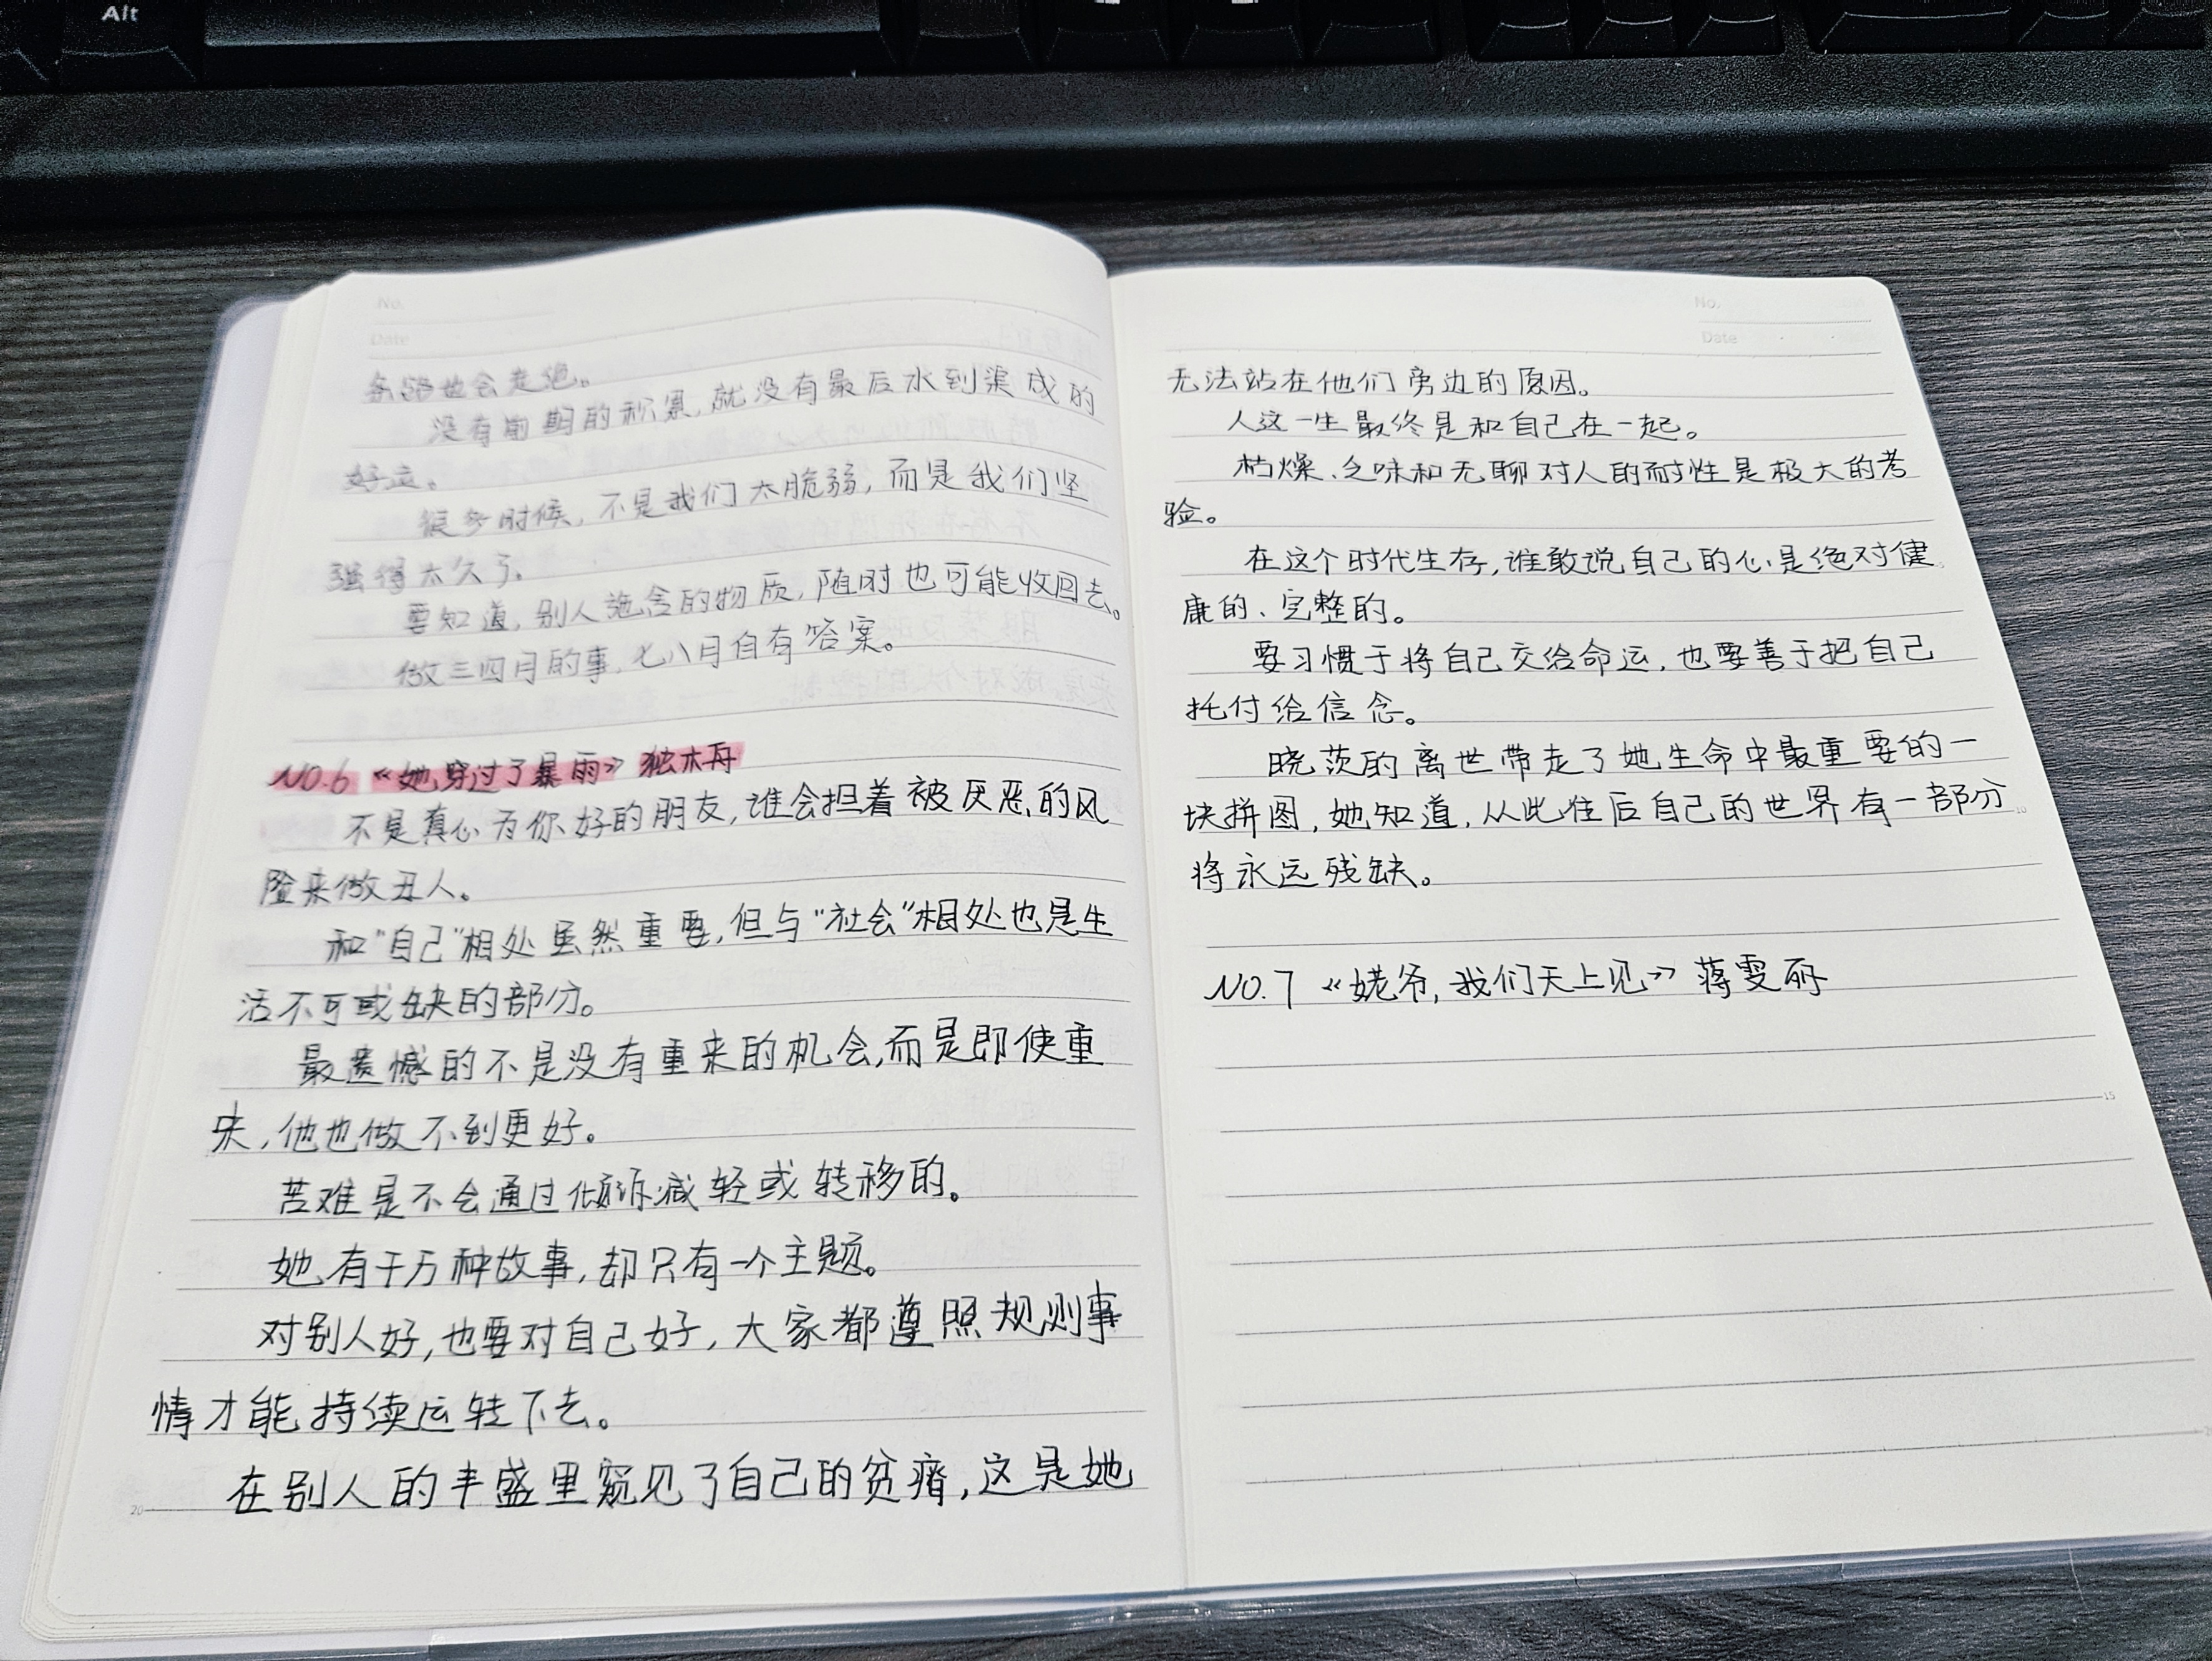 Alt
No.
Date
条路也会走绝。
没有前期的积累，就没有最后水到渠成的
好运。
很多时候，不是我们太脆弱，而是我们坚
强得太久了。
要知道，别人施舍的物质，随时也可能收回去。
做三四月的事，七八月自有答案。
NO.6 《她穿过了暴雨》 独木舟
不是真心为你好的朋友，谁会担着被厌恶的风
险来做丑人。
和“自己”相处虽然重要，但与“社会”相处也是生
活不可或缺的部分。
最遗憾的不是没有重来的机会，而是即使重
来，他也做不到更好。
苦难是不会通过倾诉减轻或转移的。
她有千万种故事，却只有一个主题。
对别人好，也要对自己好，大家都遵照规则事
情才能持续运转下去。
在别人的丰盛里窥见了自己的贫瘠，这是她
20
No.
Date
无法站在他们旁边的原因。
人这一生最终是和自己在一起。
枯燥、乏味和无聊对人的耐性是极大的考
验。
在这个时代生存，谁敢说自己的心是绝对健
康的、完整的。
要习惯于将自己交给命运，也要善于把自己
托付给信念。
晓茨的离世带走了她生命中最重要的一
块拼图，她知道，从此往后自己的世界有一部分
10
将永远残缺。
NO.7 《姥爷，我们天上见》 蒋雯丽
15